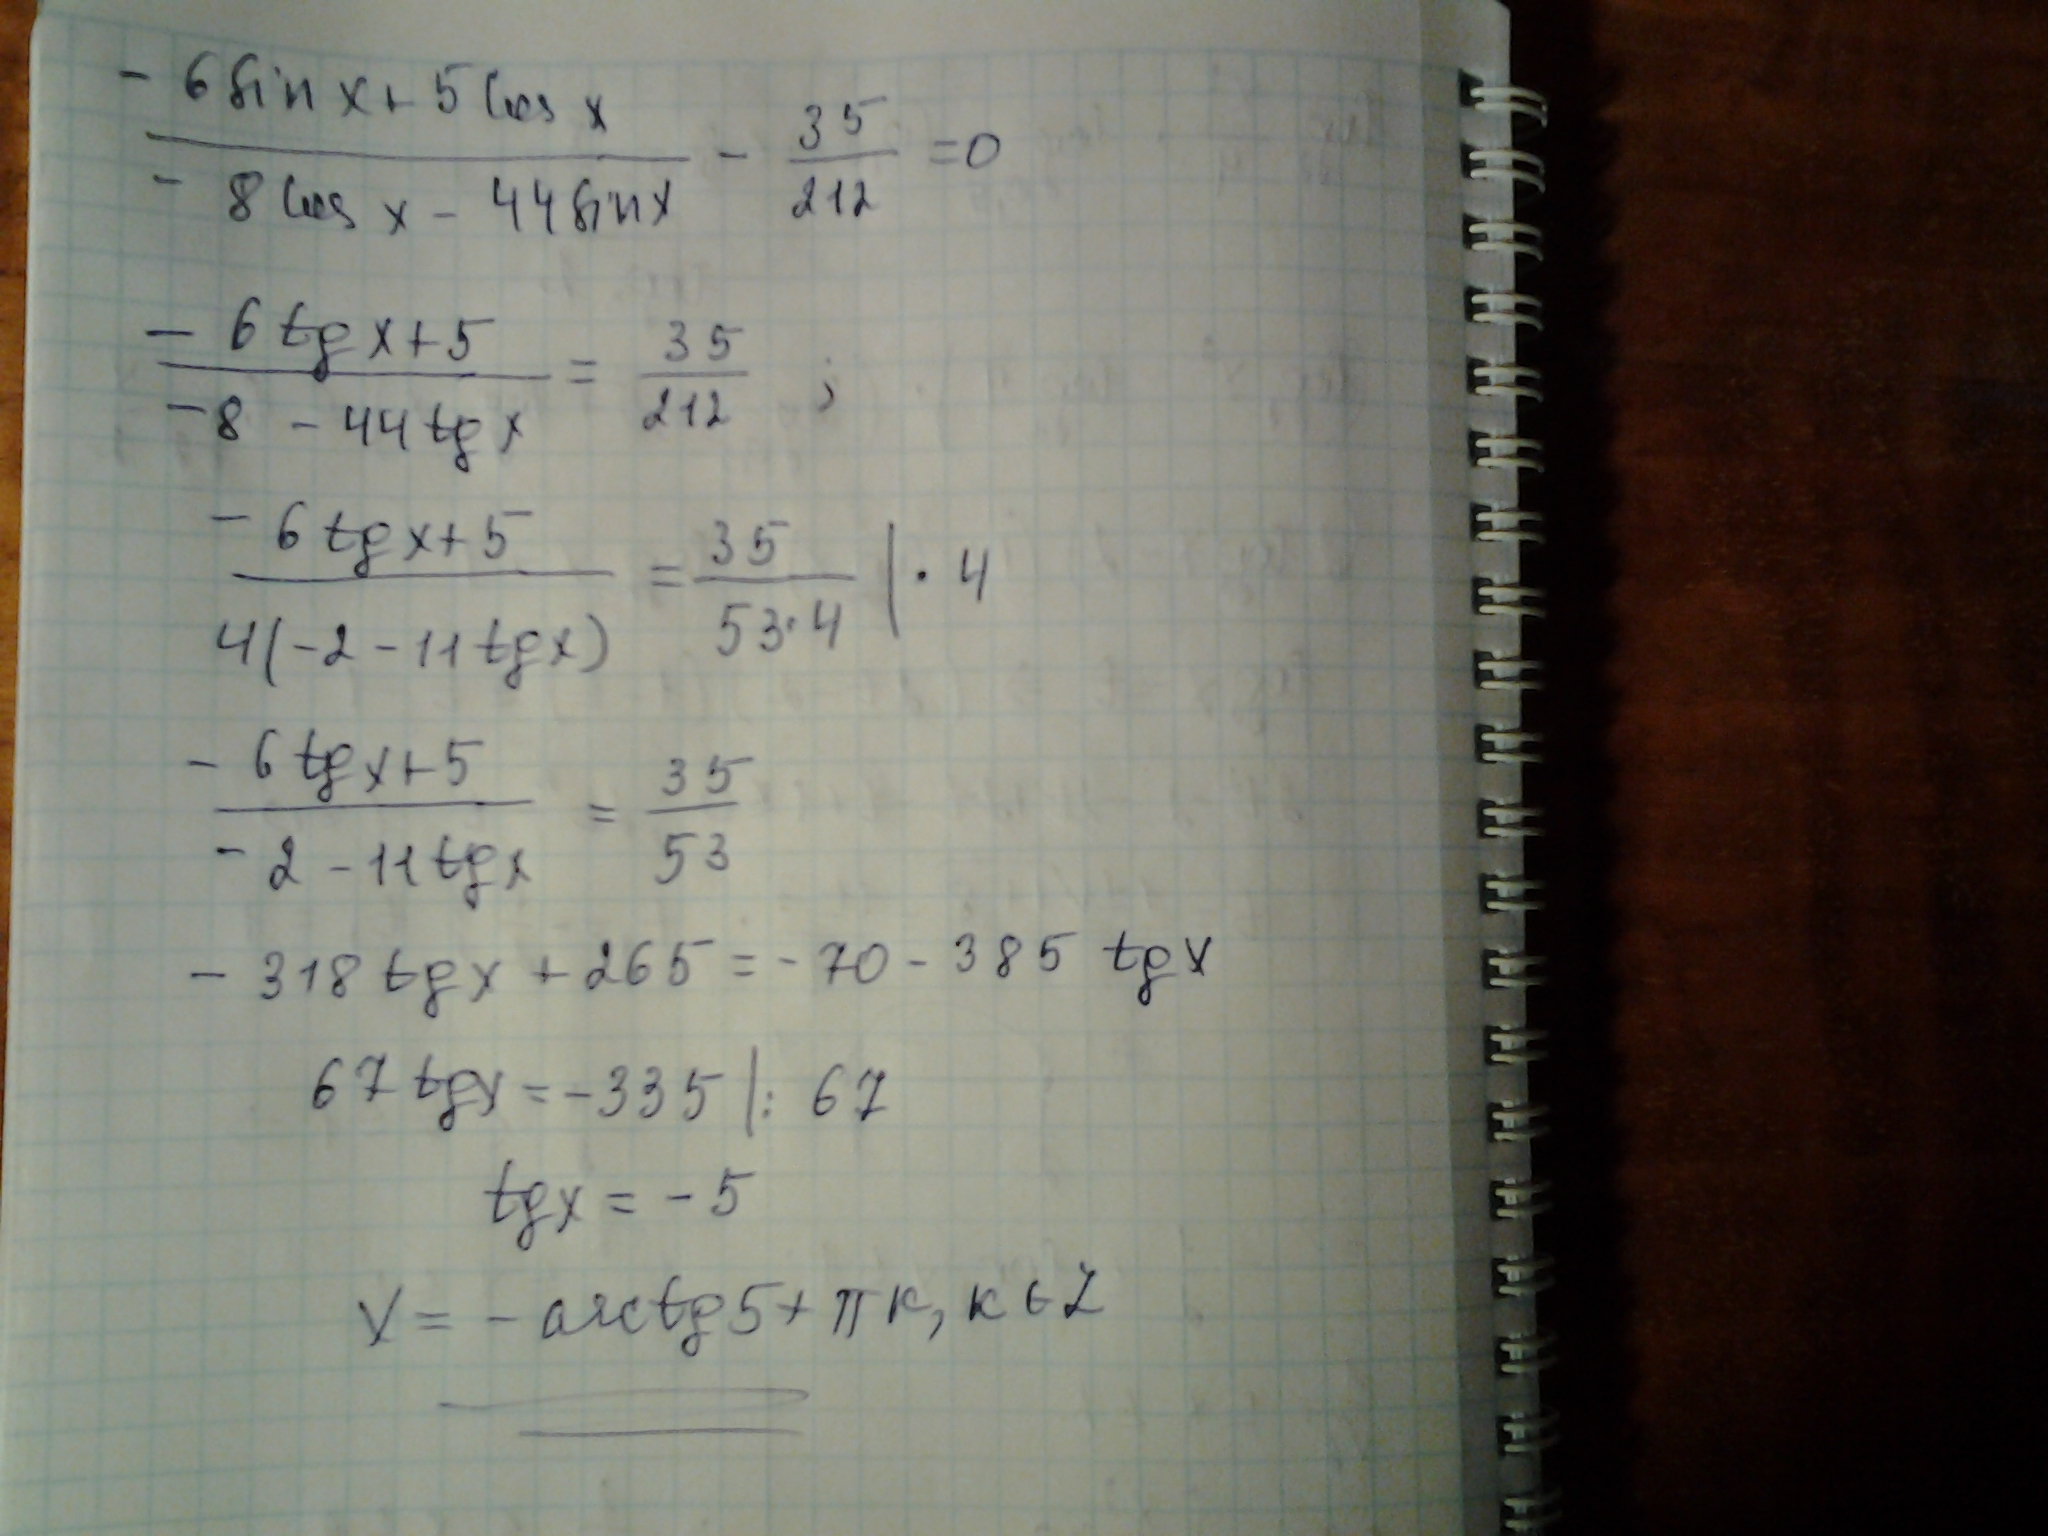 (-6sinx+5cosx)/(-8cosx-44sinx) - 35/212 =0
(-6tgx+5)/(-8-44tgx) = 35/212 ;
(-6tgx+5)/(4(-2-11tgx)) = 35/(53·4) |·4
(-6tgx+5)/(-2-11tgx) = 35/53
-318tgx+265=-70-385 tgx
67tgx=-335|: 67
tgx=-5
x=-arctg5+πк, к∈Z